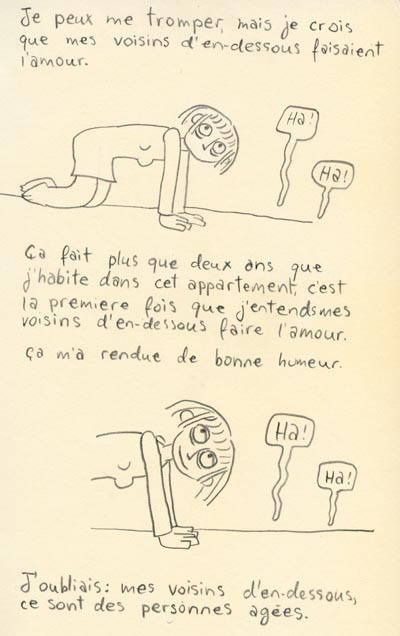 Je peux me tromper, mais je crois
que mes voisins d'en-dessous faisaient
l'amour.
Ha!
Ha!
Ça fait plus que deux ans que
j'habite dans cet appartement, c'est
la premiere fois que j'entends mes
voisins d'en-dessous faire l'amour.
Ça m'a rendue de bonne humeur.
Ha!
Ha!
J'oubliais: mes voisins d'en-dessous,
ce sont des personnes agées.